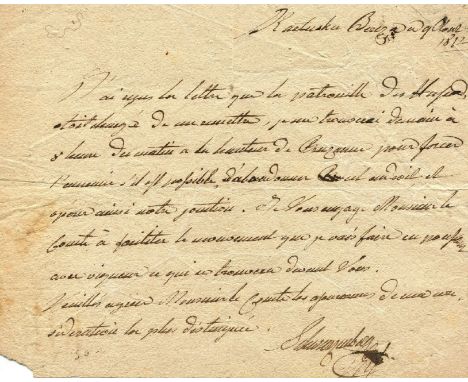 Kartuskа Bereza 9 Août
1812
J'ai reçu la lettre que la patrouille des
étoit chargé de me remettre, je me trouverai demain à
8 heures du matin à la hauteur de Pruzanne pour forcer
l'ennemi s'il est possible d'abandonner cet endroit et
ainsi notre position. Je Vous engage Monsieur le
Comte à faciliter le mouvement que je vais faire en
avec vigueur ce qui se trouvera devant Vous.
Veuillez agréer Monsieur le Comte les assurances de ma con-
sidération la plus distinguée.
Schwarzenberg